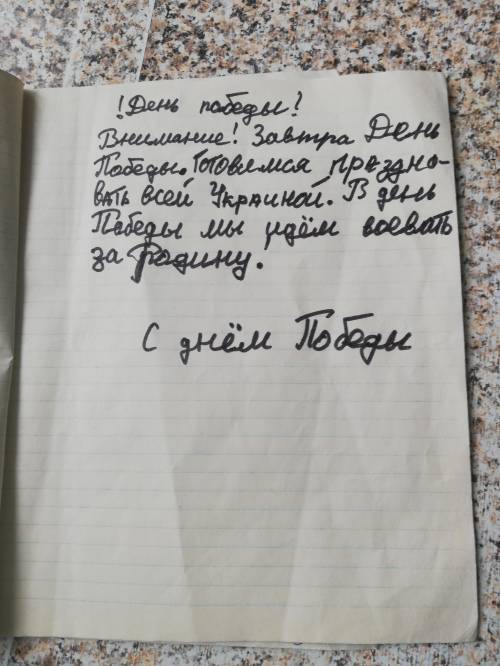 !День победы!
Внимание! Завтра День
Победы. Готовимся праздно-
вать всей Украиной. В день
Победы мы идём воевать
за Родину.
С днём Победы